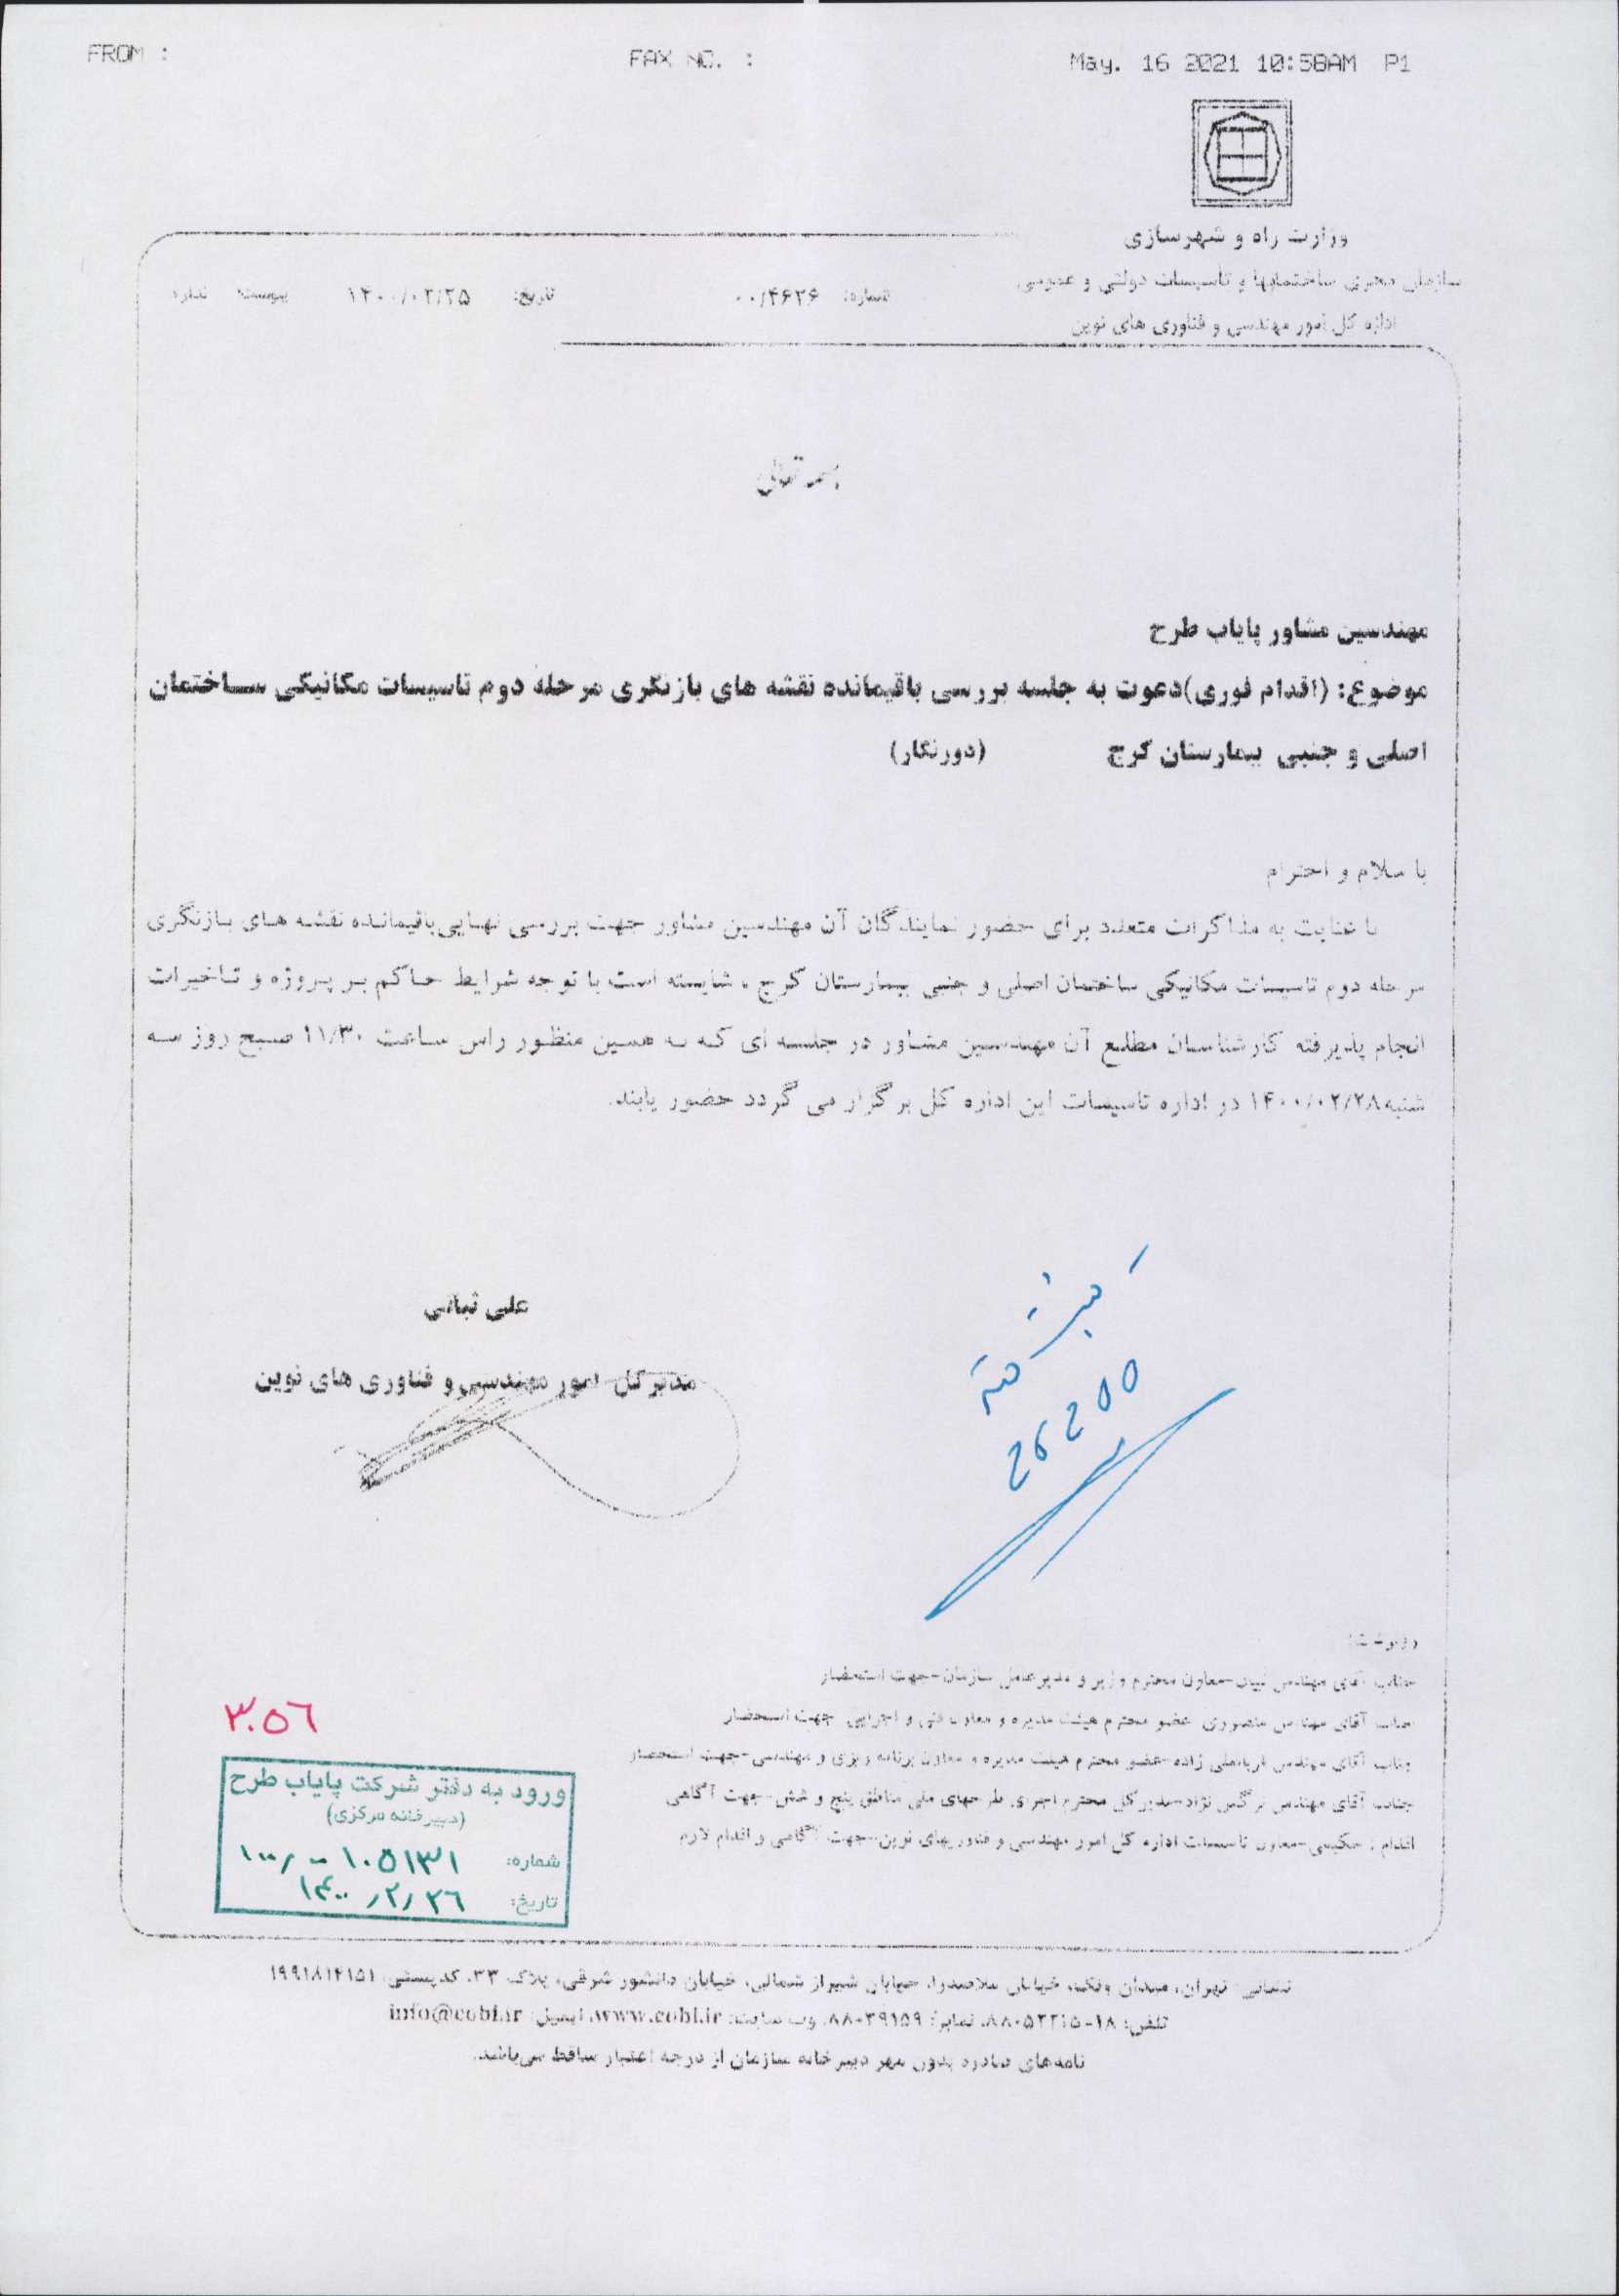 FROM :
FAX NO. :
May. 16 2021 10:58AM P1
وزارت راه و شهرسازی
سازمان مجری ساختمانها و تاسیسات دولتی و عمومی
اداره کل امور مهندسی و فناوری های نوین
شماره: ۰۰/۴۶۲۶
تاریخ: ۱۴۰۰/۰۲/۲۵
پیوست: ندارد
بسمه تعالی
مهندسین مشاور پایاب طرح
موضوع: (اقدام فوری)دعوت به جلسه بررسی باقیمانده نقشه های بازنگری مرحله دوم تاسیسات مکانیکی ساختمان
اصلی و جنبی بیمارستان کرج (دورنگار)
با سلام و احترام
با عنایت به مذاکرات متعدد برای حضور نمایندگان آن مهندسین مشاور جهت بررسی نهایی باقیمانده نقشه های بازنگری
مرحله دوم تاسیسات مکانیکی ساختمان اصلی و جنبی بیمارستان کرج ، شایسته است با توجه شرایط حاکم بر پروژه و تاخیرات
انجام پذیرفته کارشناسان مطلع آن مهندسین مشاور در جلسه ای که به همین منظور راس ساعت ۱۱/۳۰ صبح روز سه
شنبه۱۴۰۰/۰۲/۲۸ در اداره تاسیسات این اداره کل برگزار می گردد حضور یابند.
علی ثباتی
مدیر کل امور مهندسی و فناوری های نوین
رونوشت:
جناب آقای مهندس -معاون محترم وزیر و مدیرعامل سازمان-جهت استحضار
جناب آقای مهندس منصوری عضو محترم هیئت مدیره و معاون فنی و اجرایی جهت استحضار
جناب آقای مهندس قربانعلی زاده-عضو محترم هیئت مدیره و معاون برنامه ریزی و مهندسی-جهت استحضار
جناب آقای مهندس نرگس نژاد-مدیر کل محترم اجرای طرحهای ملی مناطق پنج و شش-جهت آگاهی
اقدام : حکیمی-معاون تاسیسات اداره کل امور مهندسی و فناوریهای نوین-جهت آگاهی و اقدام لازم
۳۰۵۶
ورود به دفتر شرکت پایاب طرح
(دبیرخانه مرکزی)
شماره: ۱۰۰/-۱۰۵۱۳۱
تاریخ: ۱۴۰۰/۲/۲۶
نشانی: تهران، میدان ونک، خیابان ملاصدرا، خیابان شیراز شمالی، خیابان دانشور شرقی، پلاک ۳۳، کدپستی: ۱۹۹۱۸۱۴۱۵۱
تلفن: ۱۸-۸۸۰۵۲۲۱۵، نمابر: ۸۸۰۳۹۱۵۹، وب سایت: www.cobi.ir، ایمیل: info@cobi.ir
نامه‌های صادره بدون مهر دبیرخانه سازمان از درجه اعتبار ساقط می‌باشد.